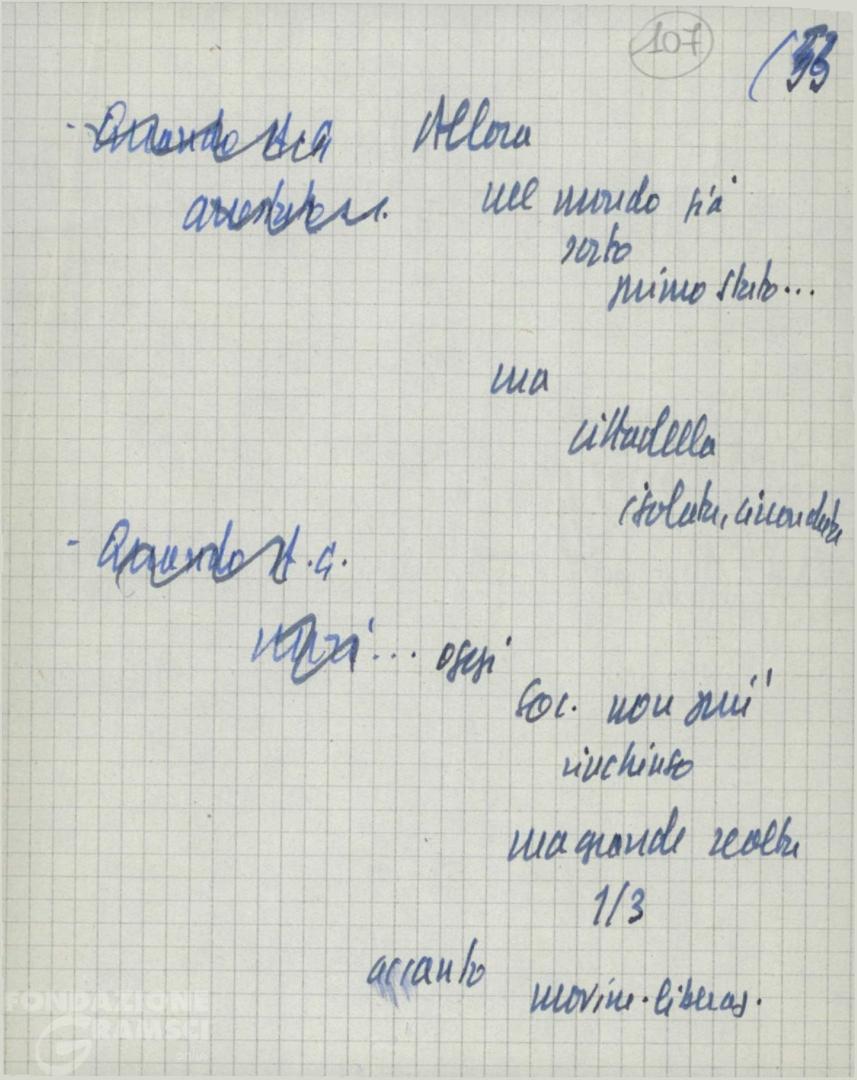 107
(33
- Quando A. G. Allora
arrestato nel mondo già
sorto
primo stato...
ma
cittadella
isolata, circondata
- Quando A. G.
morì... oggi
soc. non più
rinchiuso
ma grande realtà
1/3
accanto
movim. liberaz.
FONDAZIONE
GRAMSCI